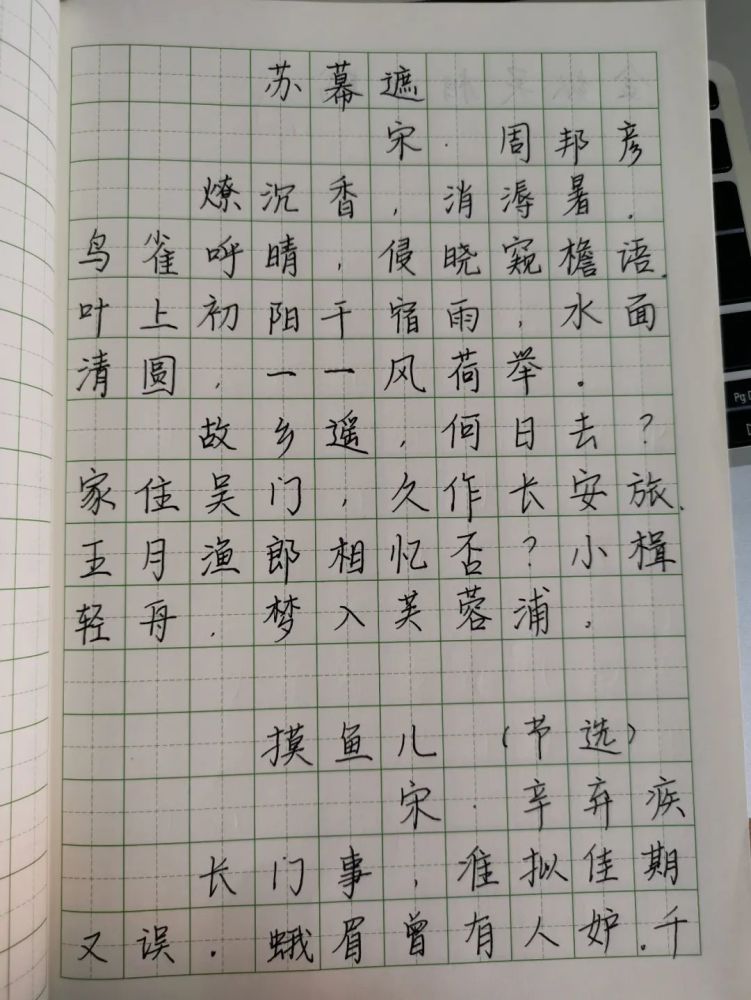 苏幕遮
宋·周邦彦
燎沉香，消溽暑．
鸟雀呼晴，侵晓窥檐语．
叶上初阳干宿雨，水面
清圆，一一风荷举。
故乡遥，何日去？
家住吴门，久作长安旅．
五月渔郎相忆否？小楫
轻舟，梦入芙蓉浦。
摸鱼儿（节选）
宋·辛弃疾
长门事，准拟佳期
又误．蛾眉曾有人妒．千
Pg D